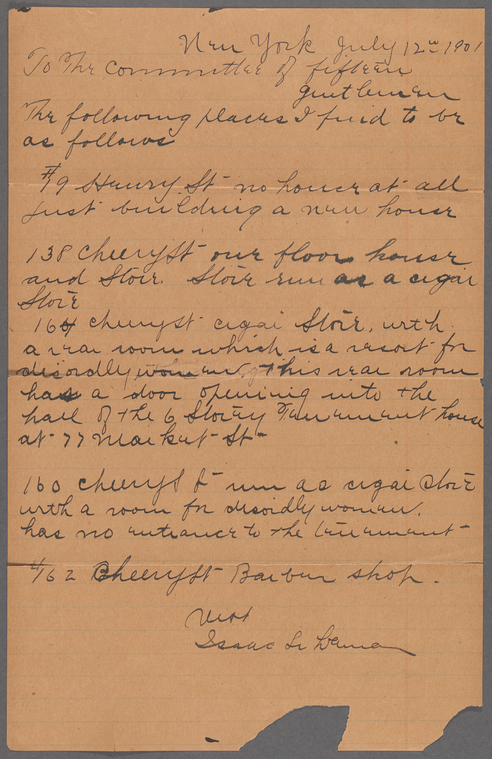 New York July 12th 1901
To The Committee of fifteen
Gentlemen
The following places I find to be
as follows
#79 Henry St no house at all
just building a new house
138 Cherry St one floor house
and Stoir. Stoir run as a cigai
Stoir
164 Cherry St cigai Stoir, with
a rear room which is a resort for
disordly women, this rear room
has a door opening into the
hall of the 6 Storey Tenement house
at 77 Market St
160 Cherry St run as cigai Stoir
with a room for disordly women.
has no entrance to the tenement
#162 Cherry St Barber shop.
Isaac